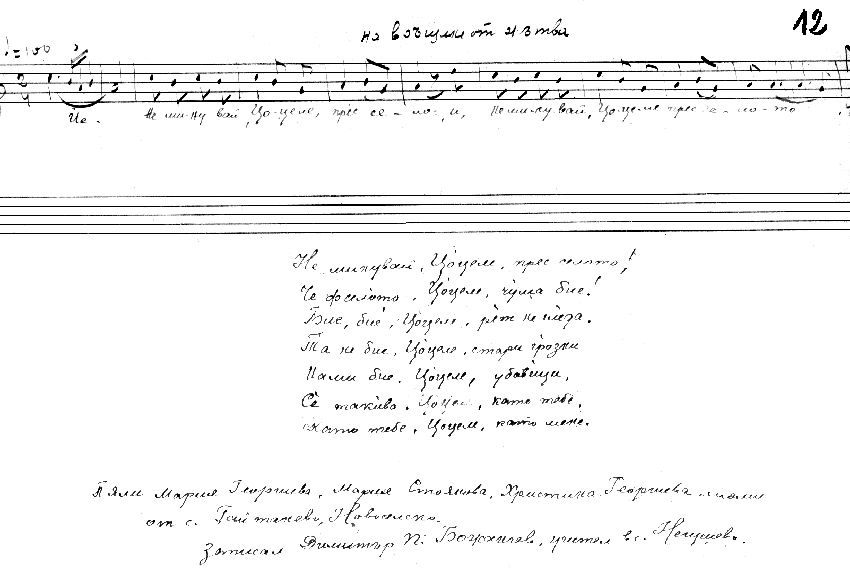 12
♩=100
2 4
Не минувай, Цоцеле, прес се-ло-и, Не минувай, Цоцеле прес се-ло-то
Не минувай, Цоцеле, прес селото!
Че фселото, Цоцеле, чума бие!
Бие, бие, Цоцеле, рет не гледа.
Та не бие, Цоцеле, стари грозни
Нами бие, Цоцеле, убавици,
Се такива, Цоцеле, като тебе,
Като тебе, Цоцеле, като мене.
Пяли Мария Георгиева, Мария Стоянова, Христина Георгиева
от с. Гайтанево, Новоселско.
Записал Димитър П. Божилов, учител в с.